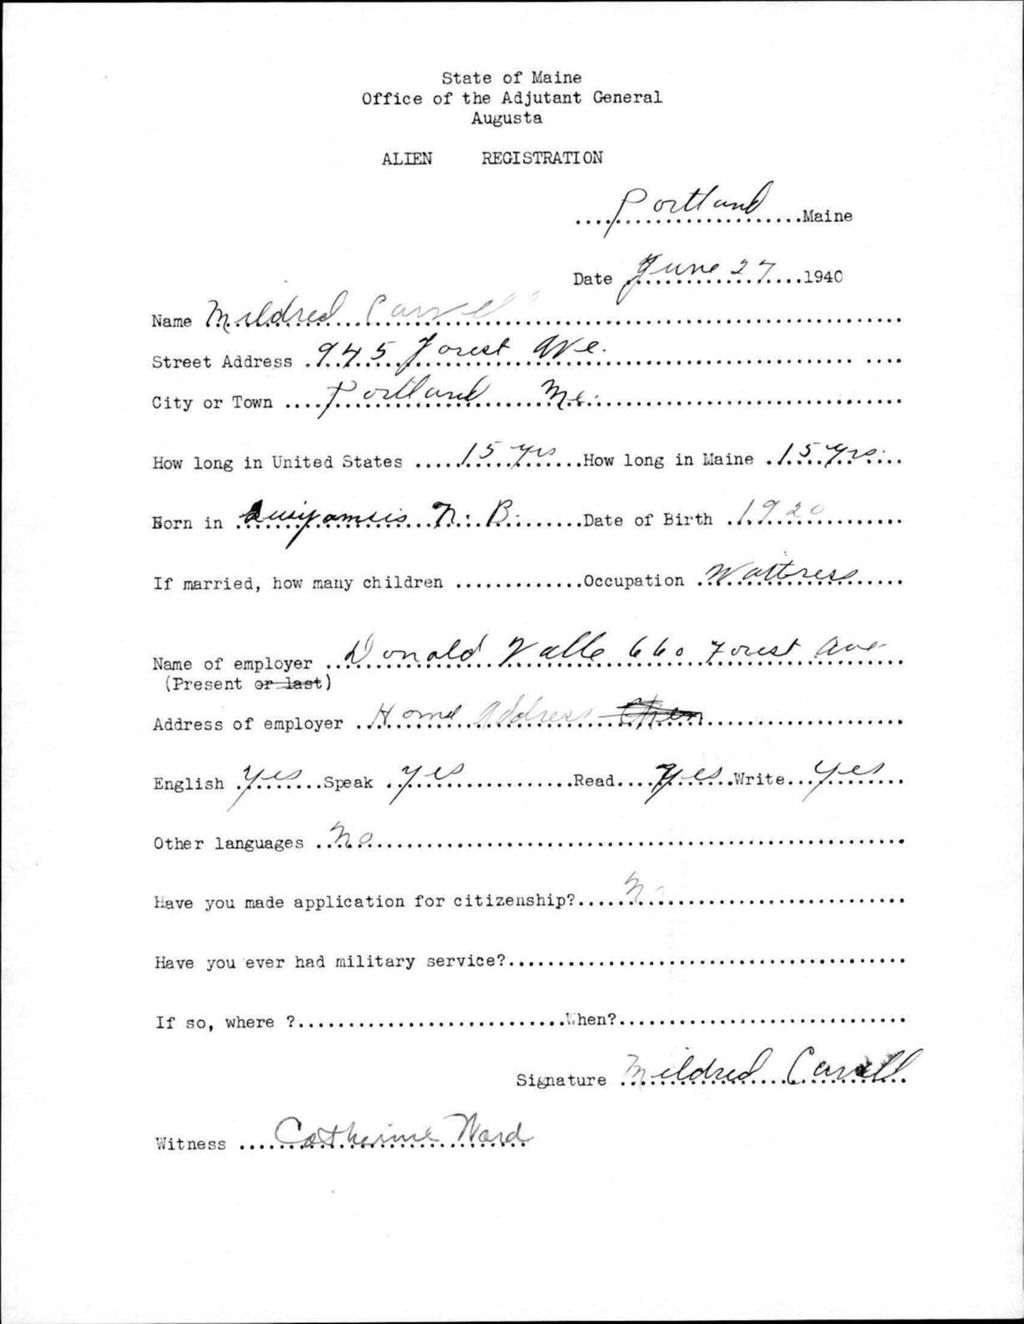 State of Maine
Office of the Adjutant General
Augusta
ALIEN REGISTRATION
Portland Maine
Date June 27 1940
Name Mildred
Street Address 945 Forest Ave.
City or Town Portland Me.
How long in United States 15 yrs How long in Maine 15 yrs.
Born in N. B. Date of Birth 1920
If married, how many children Occupation Waitress
Name of employer Donald Valle 660 Forest Ave
(Present or last)
Address of employer Home Address
English Yes Speak Yes Read Yes Write Yes
Other languages No
Have you made application for citizenship? No
Have you ever had military service?
If so, where ? When?
Signature Mildred
Witness Catherine Ward